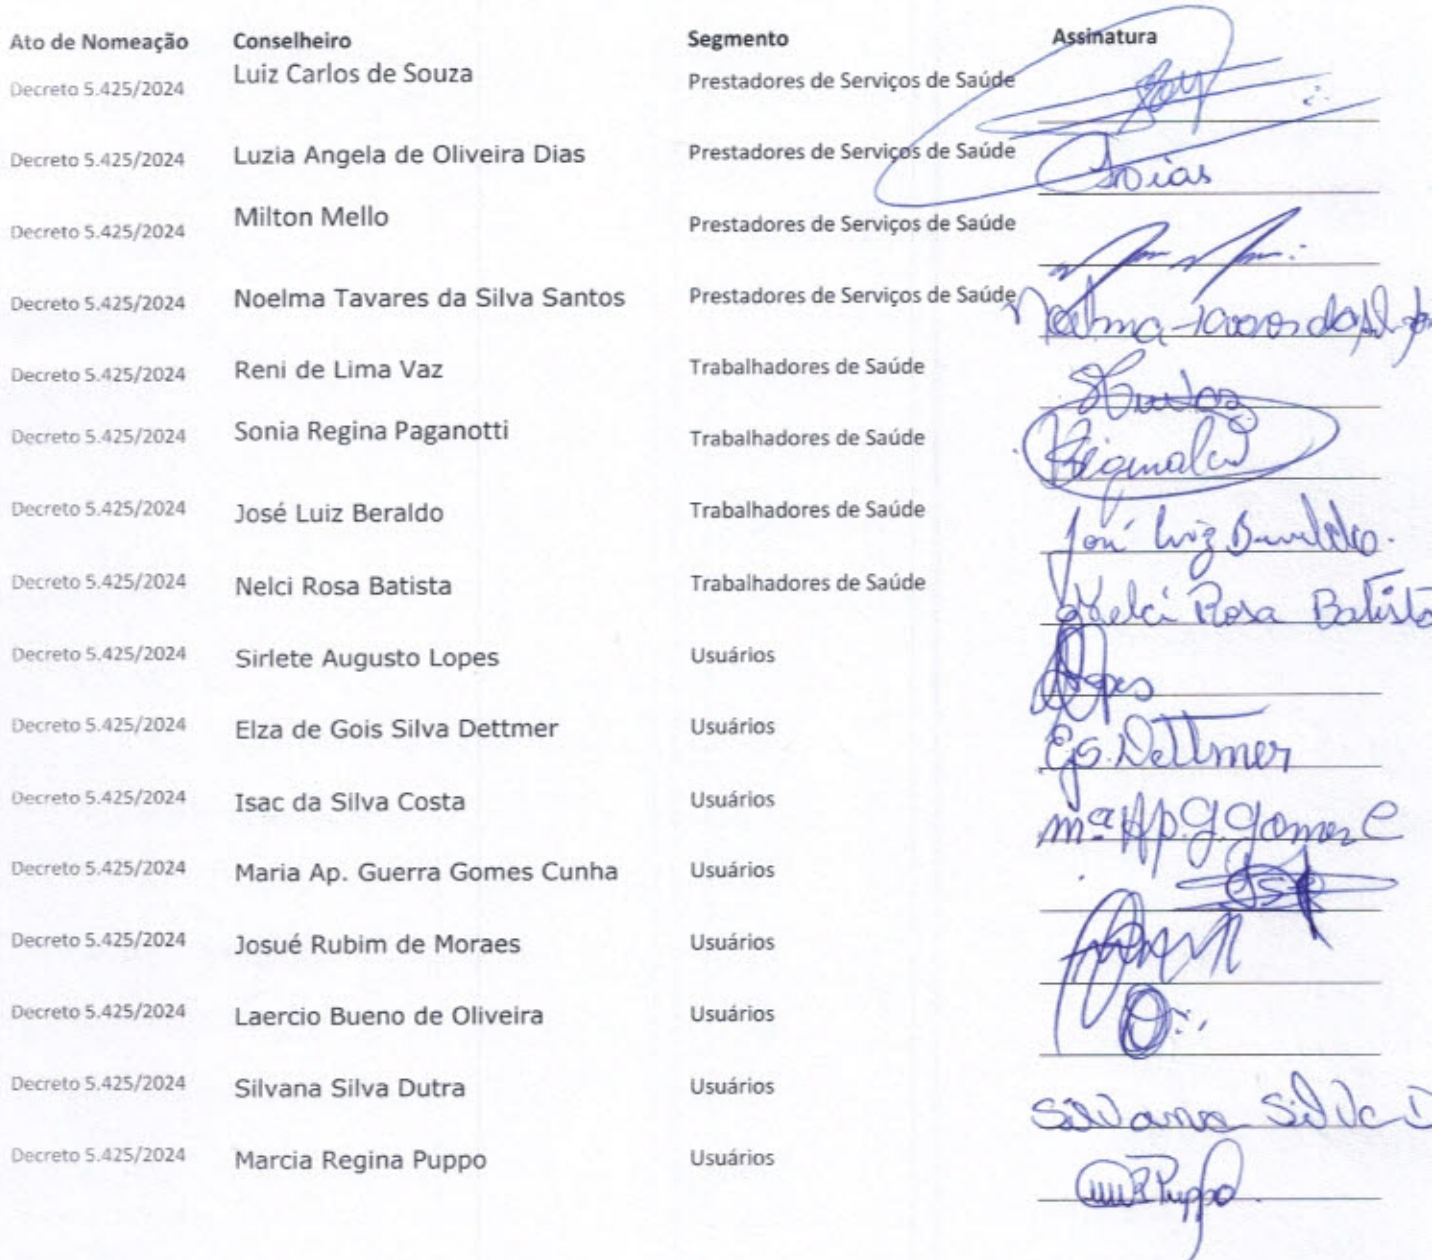 Ato de Nomeação Conselheiro Segmento Assinatura
Decreto 5.425/2024 Luiz Carlos de Souza Prestadores de Serviços de Saúde
Decreto 5.425/2024 Luzia Angela de Oliveira Dias Prestadores de Serviços de Saúde Dias
Decreto 5.425/2024 Milton Mello Prestadores de Serviços de Saúde
Decreto 5.425/2024 Noelma Tavares da Silva Santos Prestadores de Serviços de Saúde Noelma Tavares da
Decreto 5.425/2024 Reni de Lima Vaz Trabalhadores de Saúde
Decreto 5.425/2024 Sonia Regina Paganotti Trabalhadores de Saúde
Decreto 5.425/2024 José Luiz Beraldo Trabalhadores de Saúde José Luiz Beraldo.
Decreto 5.425/2024 Nelci Rosa Batista Trabalhadores de Saúde Nelci Rosa Batista
Decreto 5.425/2024 Sirlete Augusto Lopes Usuários Lopes
Decreto 5.425/2024 Elza de Gois Silva Dettmer Usuários EGS. Dettmer
Decreto 5.425/2024 Isac da Silva Costa Usuários Mª Ap. G. Gomes C
Decreto 5.425/2024 Maria Ap. Guerra Gomes Cunha Usuários
Decreto 5.425/2024 Josué Rubim de Moraes Usuários
Decreto 5.425/2024 Laercio Bueno de Oliveira Usuários
Decreto 5.425/2024 Silvana Silva Dutra Usuários Silvana Silva D
Decreto 5.425/2024 Marcia Regina Puppo Usuários Puppo.